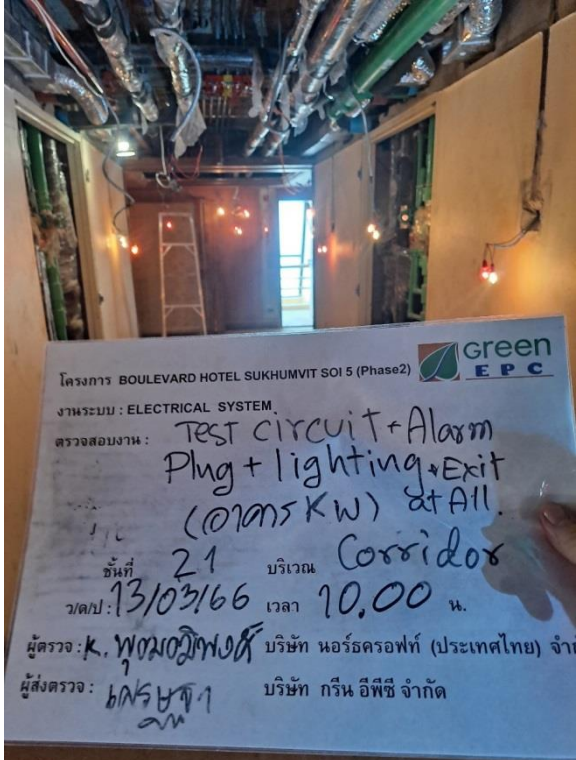 Green
EPC
โครงการ BOULEVARD HOTEL SUKHUMVIT SOI 5 (Phase2)
งานระบบ : ELECTRICAL SYSTEM
ตรวจสอบงาน : Test circuit + Alarm
Plug + lighting + Exit
(อาคาร KW) at All.
ชั้นที่ 21 บริเวณ Corridor
ว/ด/ป : 13/03/66 เวลา 10.00 น.
ผู้ตรวจ : K. บริษัท นอร์ธครอฟท์ (ประเทศไทย)
ผู้ส่งตรวจ : เศรษฐา บริษัท กรีน อีพีซี จำกัด